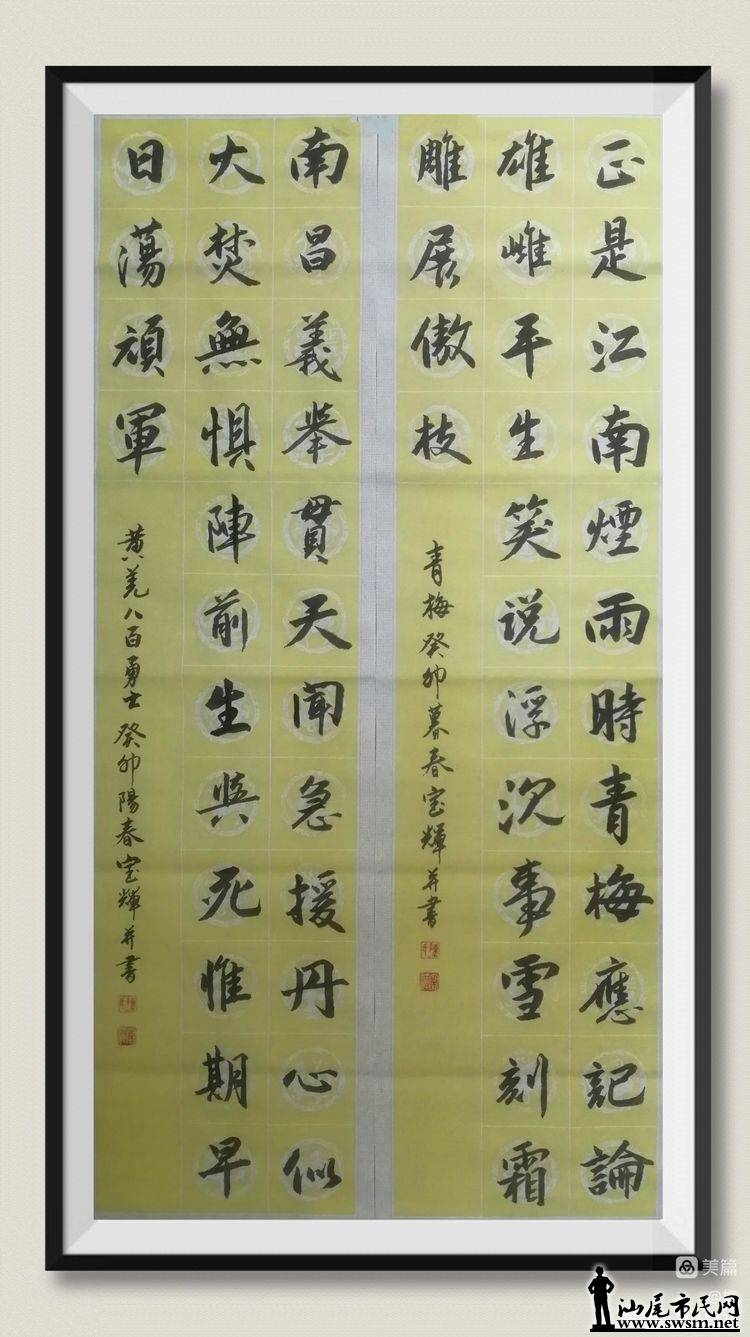 正是江南煙雨時青梅應記論
雄雌平生笑说浮沉事雪刻霜
雕展傲枝
青梅癸卯暮春宝輝并書
南昌義举貫天闻急援丹心似
火焚無惧陣前生與死惟期早
日蕩頑軍
黄羌八百勇士癸卯陽春宝輝并書
美篇
汕尾市民网
www.swsm.net